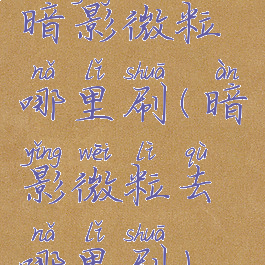 暗影微粒
nǎ lǐ shuā àn
哪里刷(暗
yǐng wēi lì qù
影微粒去
nǎ lǐ shuā
哪里刷)